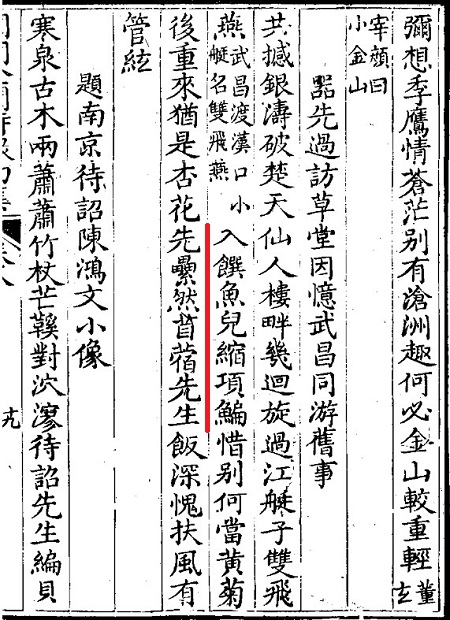 彌想季鷹情蒼茫别有滄洲趣何必金山較重輕董玄
宰顔曰小金山
器先過訪草堂因憶武昌同游舊事
共撼銀濤破楚天仙人樓畔幾迴旋過江艇子雙飛
燕武昌渡漢口小艇名雙飛燕入饌魚兒縮項鯿惜别何當黄菊
後重來猶是杏花先纍然苜蓿先生飯深愧扶風有
管絃
題南京待詔陳鴻文小像
寒泉古木兩蕭蕭竹杖芒鞵對泬漻待詔先生編貝
十九